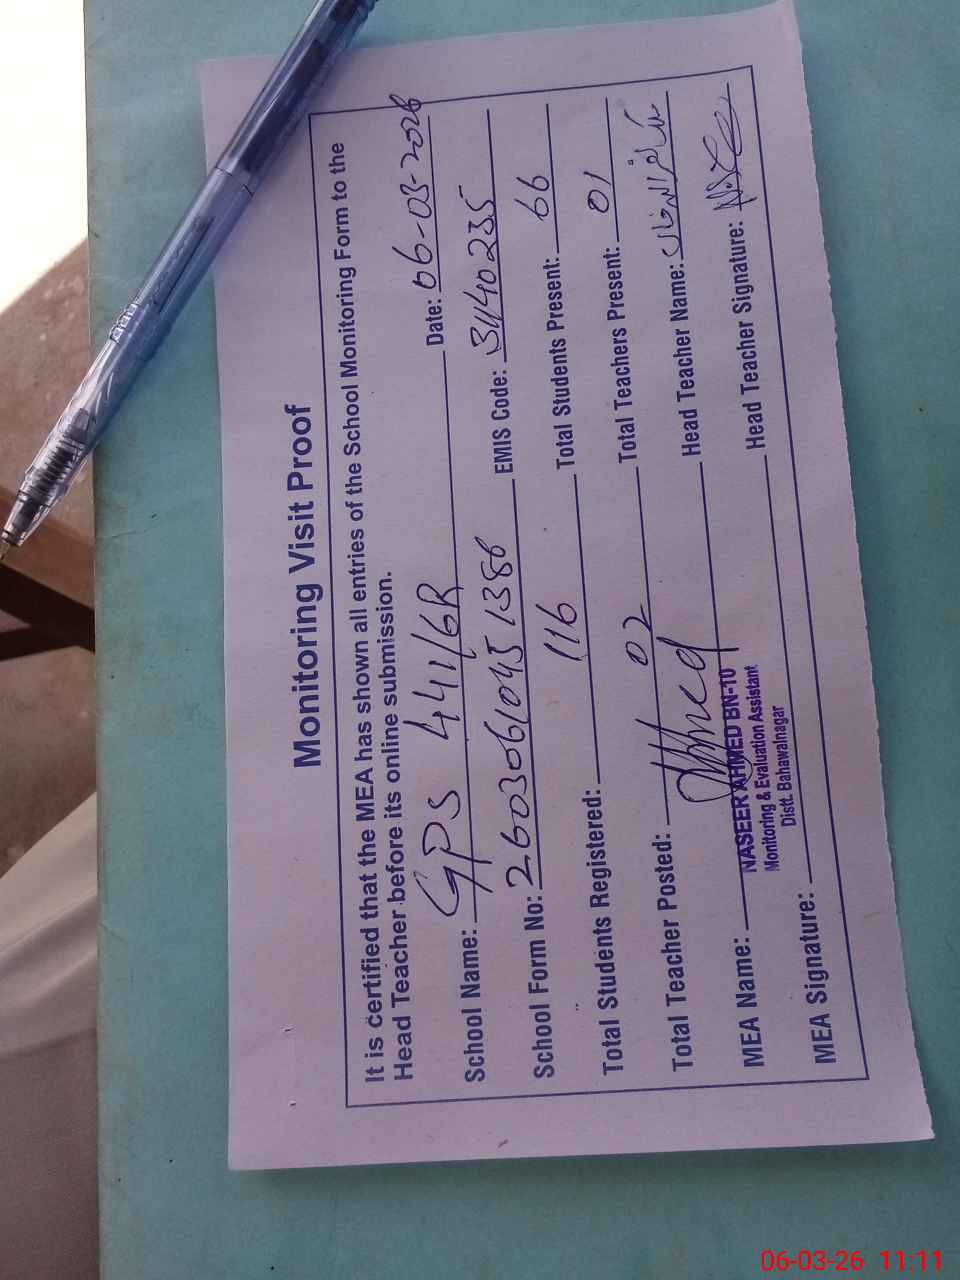 Monitoring Visit Proof
It is certified that the MEA has shown all entries of the School Monitoring Form to the
Head Teacher before its online submission.
School Name: GPS 441/6R Date: 06-03-2026
School Form No: 26030610451386 EMIS Code: 31140235
Total Students Registered: 116 Total Students Present: 66
Total Teacher Posted: 02 Total Teachers Present: 01
MEA Name: Head Teacher Name:
NASEER AHMED BN-10
Monitoring & Evaluation Assistant
Distt. Bahawalnagar
MEA Signature: Head Teacher Signature:
06-03-26 11:11